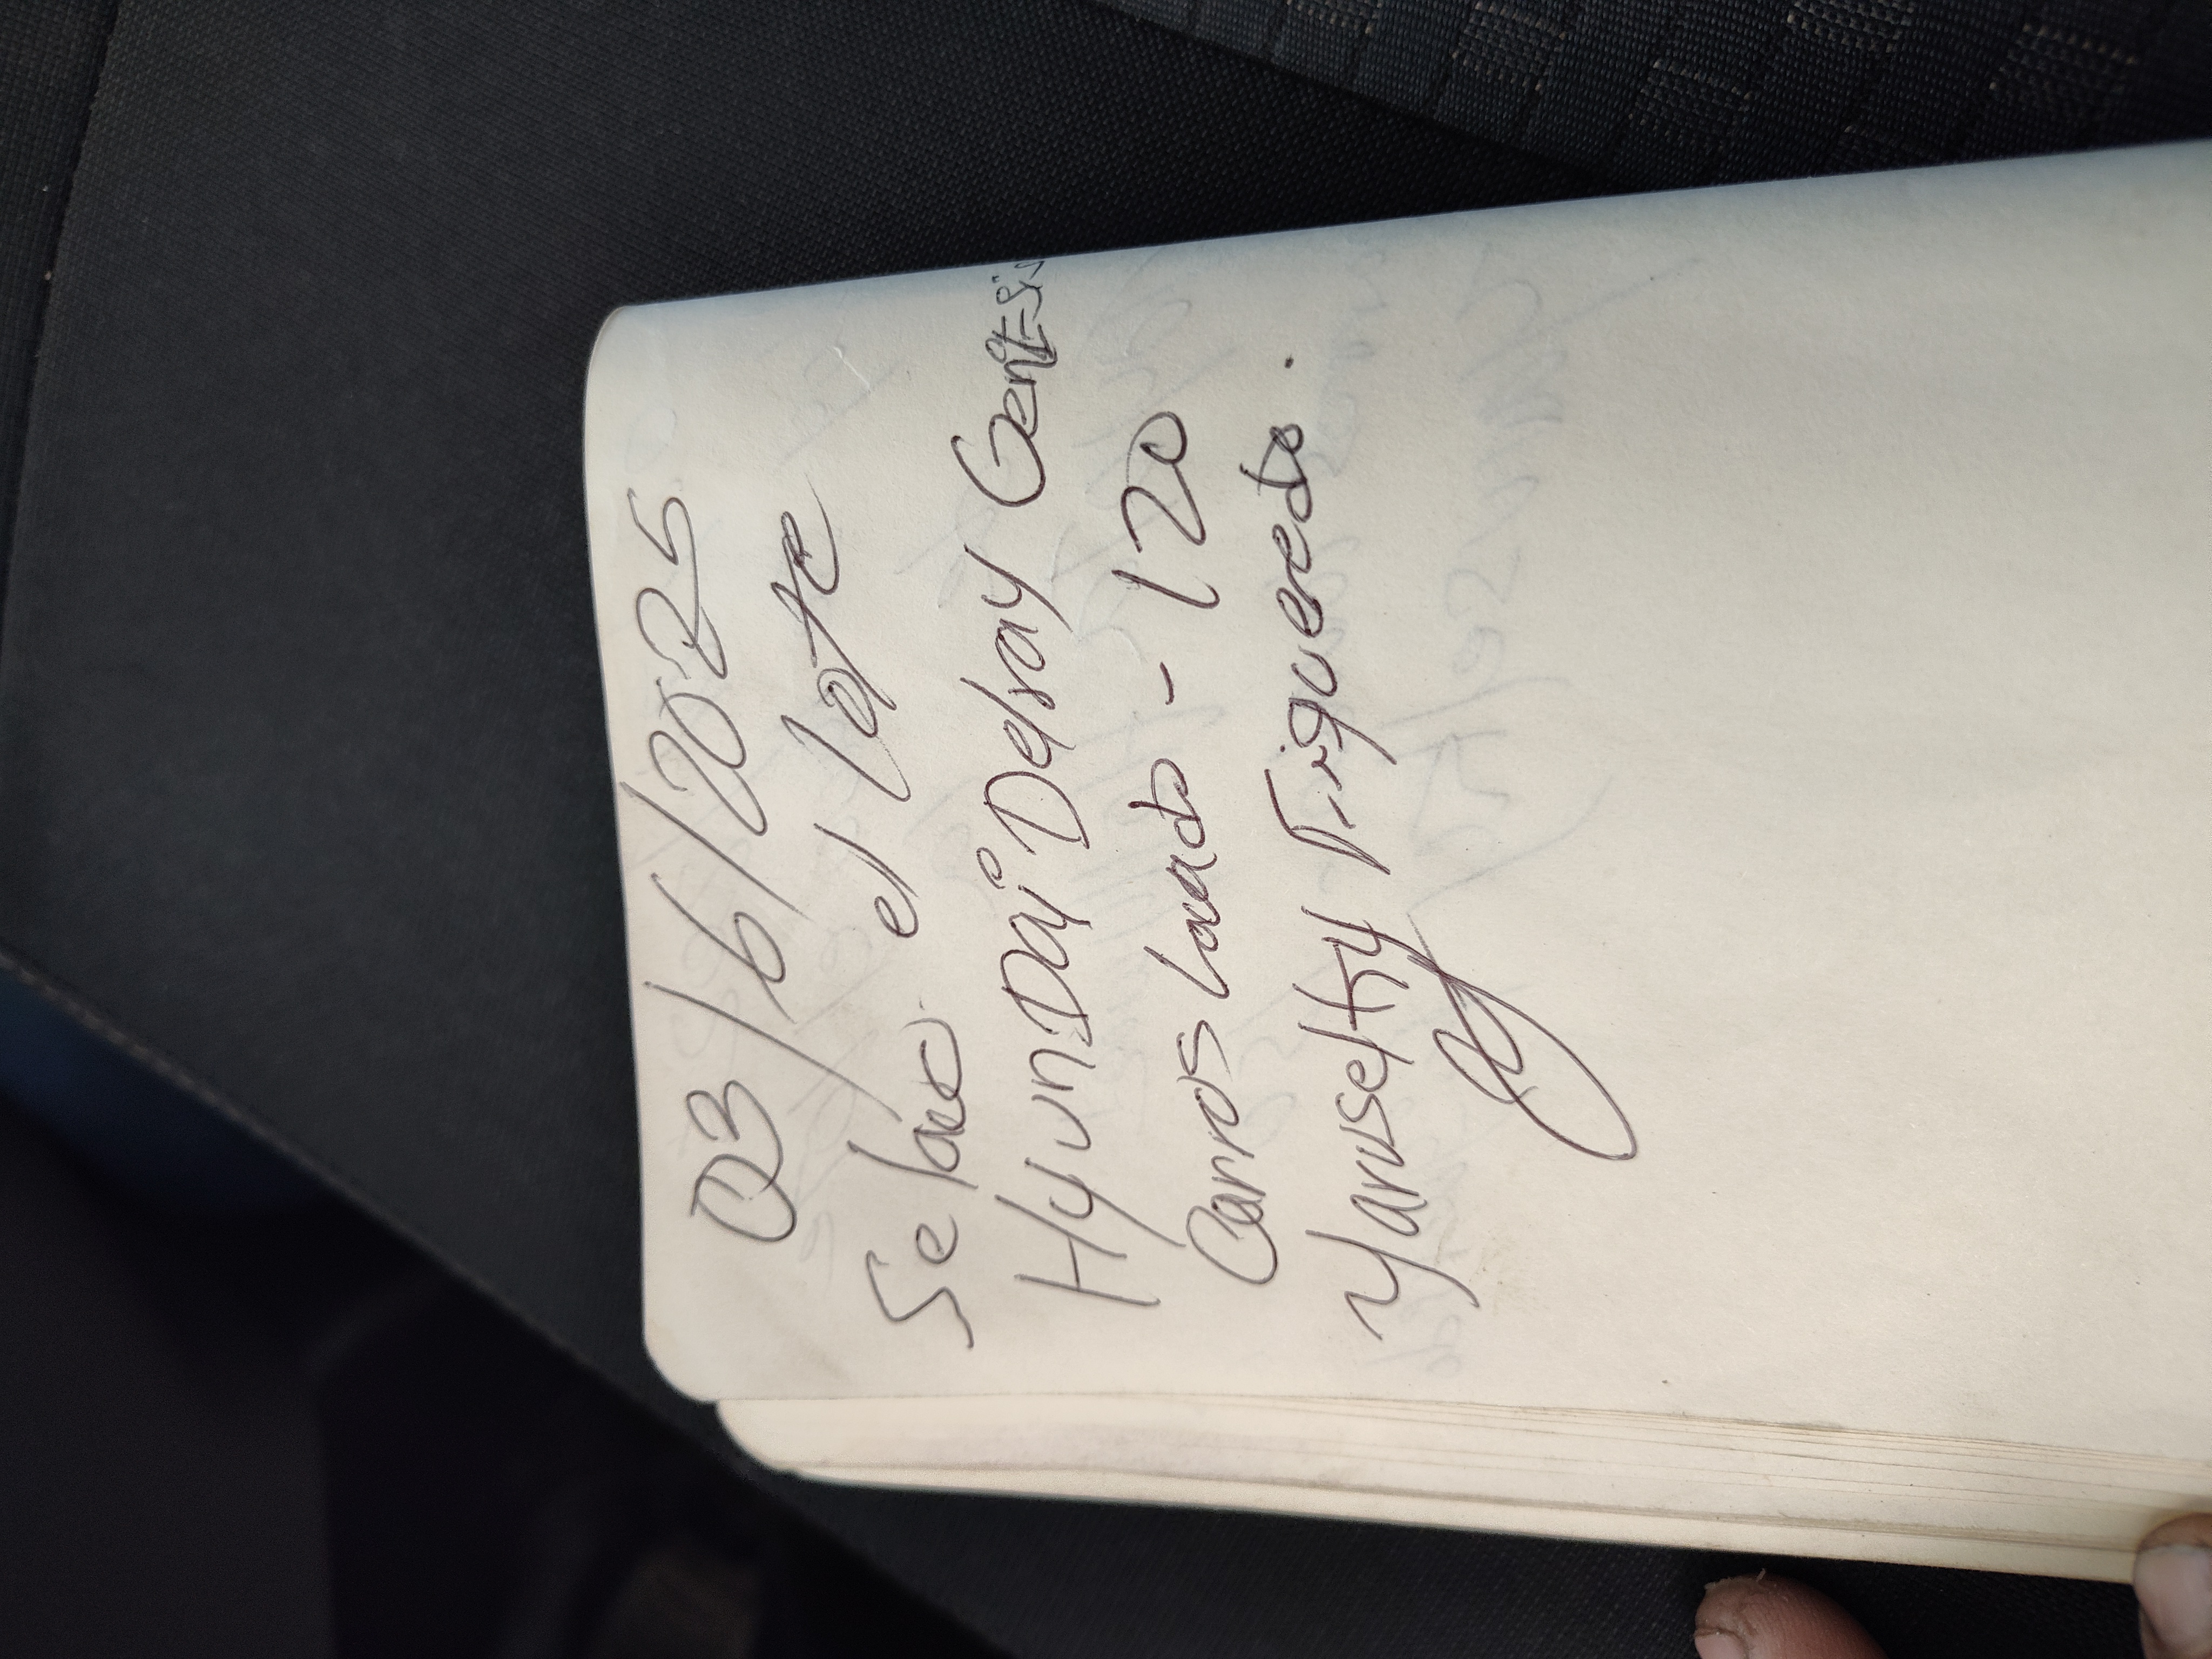 03/6/2025
Se lavo el lote
HyunDai Delray Genesis
Carros lavado - 120
Yarusetty Figueredo.